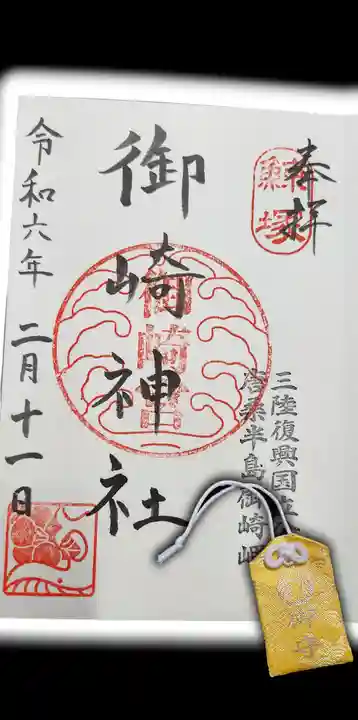 奉拝
鯨塚
三陸復興国立
唐桑半島御崎岬
御崎神社
令和六年 二月十一日
御守